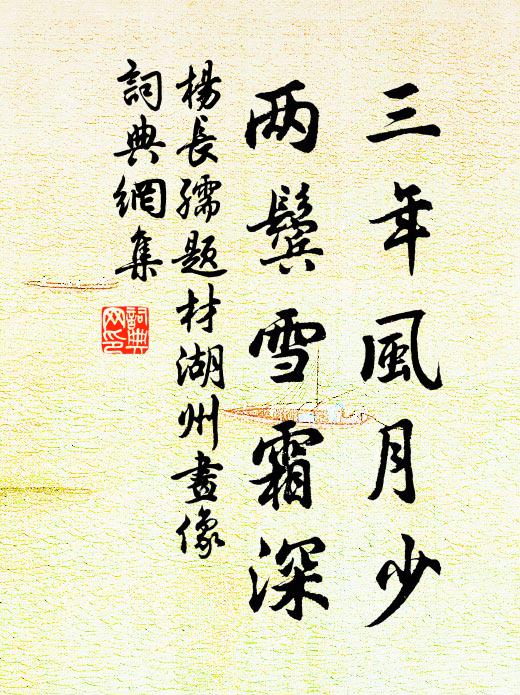 三年風月少
两鬓雪霜深
楊長孺题材湖州畫像
詞典網集
詞典
网印